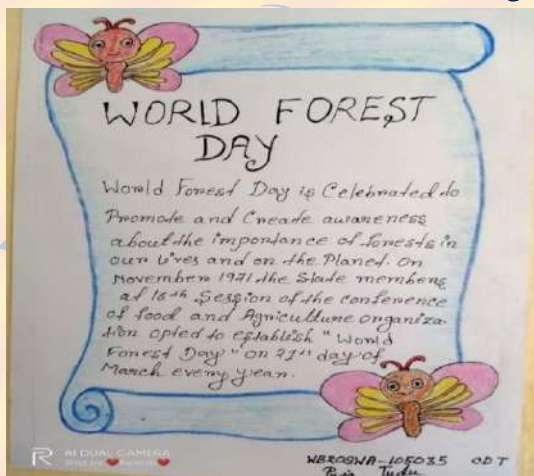 WORLD FOREST
DAY
World Forest Day is Celebrated to
Promote and Create awareness
about the importance of forests in
our lives and on the Planet. On
November 1971 the State members
at 16th Session of the conference
of food and Agriculture organiza-
tion opted to establish "World
Forest Day" on 21st day of
March every year.
AI DUAL CAMERA
WBROSWA-105035 CDT
Tudu